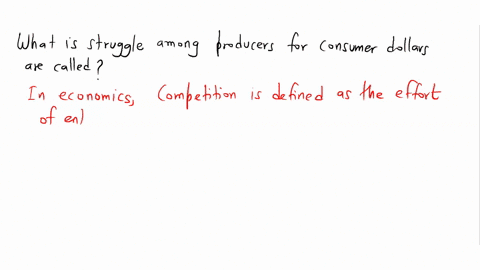 What is struggle among producers for consumer dollars
are called?
In economics, Competition is defined as the effort
of en